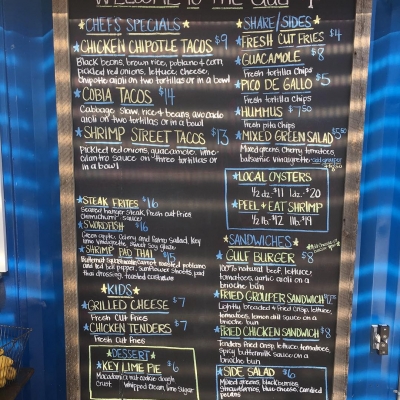 WELCOME TO THE
CHEFS SPECIALS
CHICKEN CHIPOTLE TACOS $9
Black beans, brown rice, potatoes & corn,
pickled red onions, lettuce, cheese,
Chipotle aioli on two tortillas or in a bowl
COBIA TACOS $14
Cabbage slaw, rice & beans, avocado
aioli on two tortillas or in a bowl
SHRIMP STREET TACOS $13
Pickled red onions, guacamole, lime-
cilantro sauce on three tortillas or
in a bowl
STEAK FRITES $16
seared hanger steak, Fresh cut Fries
Chimichurri sauce
SWORDFISH $16
Green apple, Celery and Raisin Salad, Key
lime vinaigrette, sweet soy Glaze
SHRIMP PAD THAI $15
Butternut Squash, roasted potatoes
and red bell pepper, sunflower shoots, pad
thai dressing, toasted
KIDS
GRILLED CHEESE $7
Fresh Cut Fries
CHICKEN TENDERS $7
Fresh Cut Fries
DESSERT
KEY LIME PIE $6
Macadamia nut cookie dough
Crust Whipped Cream, lime Sugar
SHARE/SIDES
FRESH CUT FRIES $4
GUACAMOLE $8
Fresh tortilla Chips
PICO DE GALLO $5
Fresh tortilla Chips
HUMMUS $7.50
Fresh pita Chips
MIXED GREEN SALAD $5.50
Mixed greens, Cherry tomatoes,
balsamic vinaigrette
LOCAL OYSTERS
1/2 dz. $11 1dz. $20
PEEL & EAT SHRIMP
1/2 lb. $12 1lb. $19
SANDWICHES
GULF BURGER $8
100% natural beef, lettuce,
tomatoes, garlic aioli on a
brioche bun
FRIED GROUPER SANDWICH
Lightly breaded & fried crisp, lettuce,
tomatoes, lemon dill sauce on a
brioche bun
FRIED CHICKEN SANDWICH $8
Tenders fried crisp, lettuce, tomatoes,
spicy buttermilk sauce on a
brioche bun
SIDE SALAD $6
Mixed greens, blackberries,
Strawberries, blue cheese, Candied
pecans